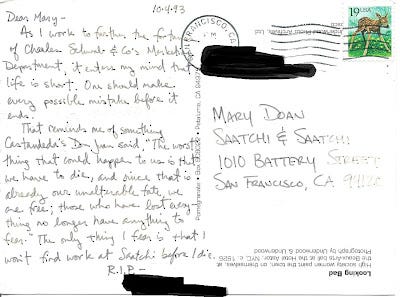 10·4·93
Dear Mary-
As I work to further the fortunes
of Charles Schwab & Co's Marketing
Department, it enters my mind that
life is short. One should make
every possible mistake before it
ends.
That reminds me of something
Castaneda's Don Juan said, "The worst
thing that could happen to us is that
we have to die, and since that is
already our unalterable fate, we
are free; those who have lost every-
thing no longer have anything to
fear." The only thing I fear is that I
won't find work at Saatchi before I die.
R.I.P.-
SAN FRANCISCO, CA
PM
19
USA
MARY DOAN
SAATCHI & SAATCHI
1010 BATTERY STREET
SAN FRANCISCO, CA
Looking Bad
High society women paint the town, or themselves, at
the Beauxarts ball at the Hotel Astor. NYC, c. 1926
Photograph by Underwood & Underwood